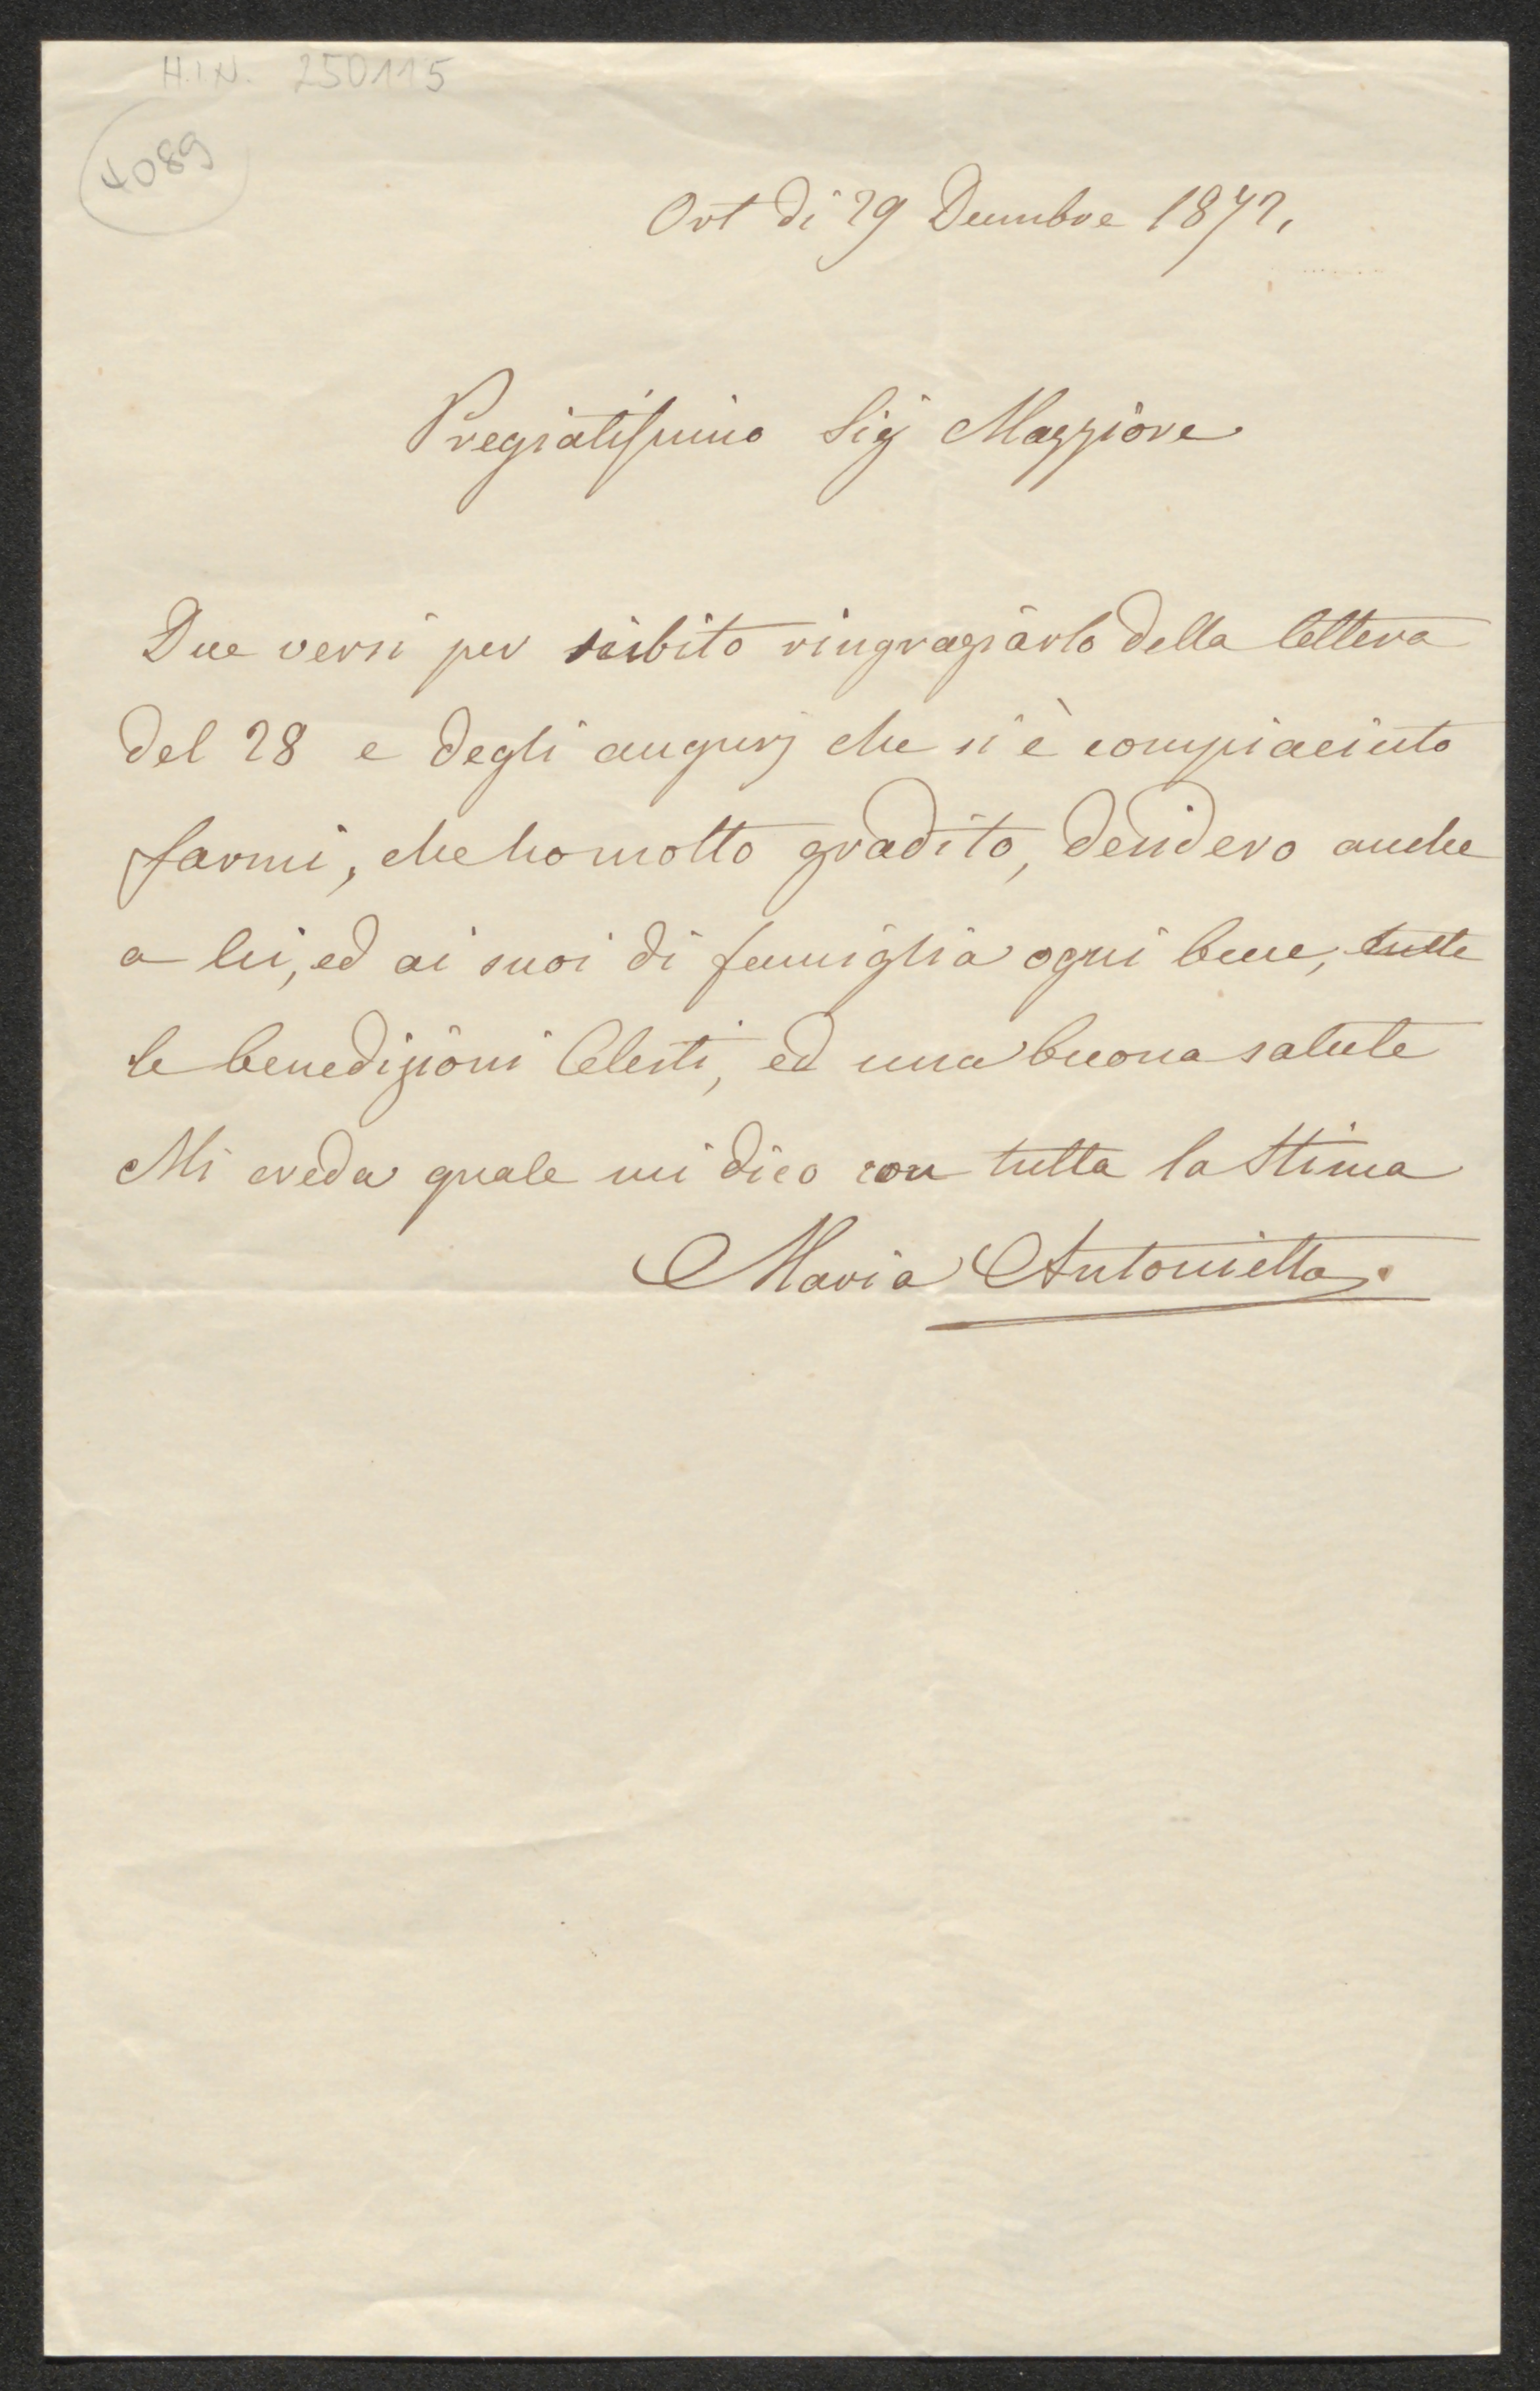 H.I.N. 250115
4089
Ort di 29 Decembre 1872,
Pregiatissimo Sig Maggiore
Due versi per subito ringraziarlo della lettera
del 28 e degli augurj che si è compiaciuto
farmi, che ho molto gradito, desidero anche
a lei, ed ai suoi di famiglia ogni bene, tutte
le benedizioni Celesti, ed una buona salute
Mi creda quale mi dico con tutta la Stima
Maria Antonietta.